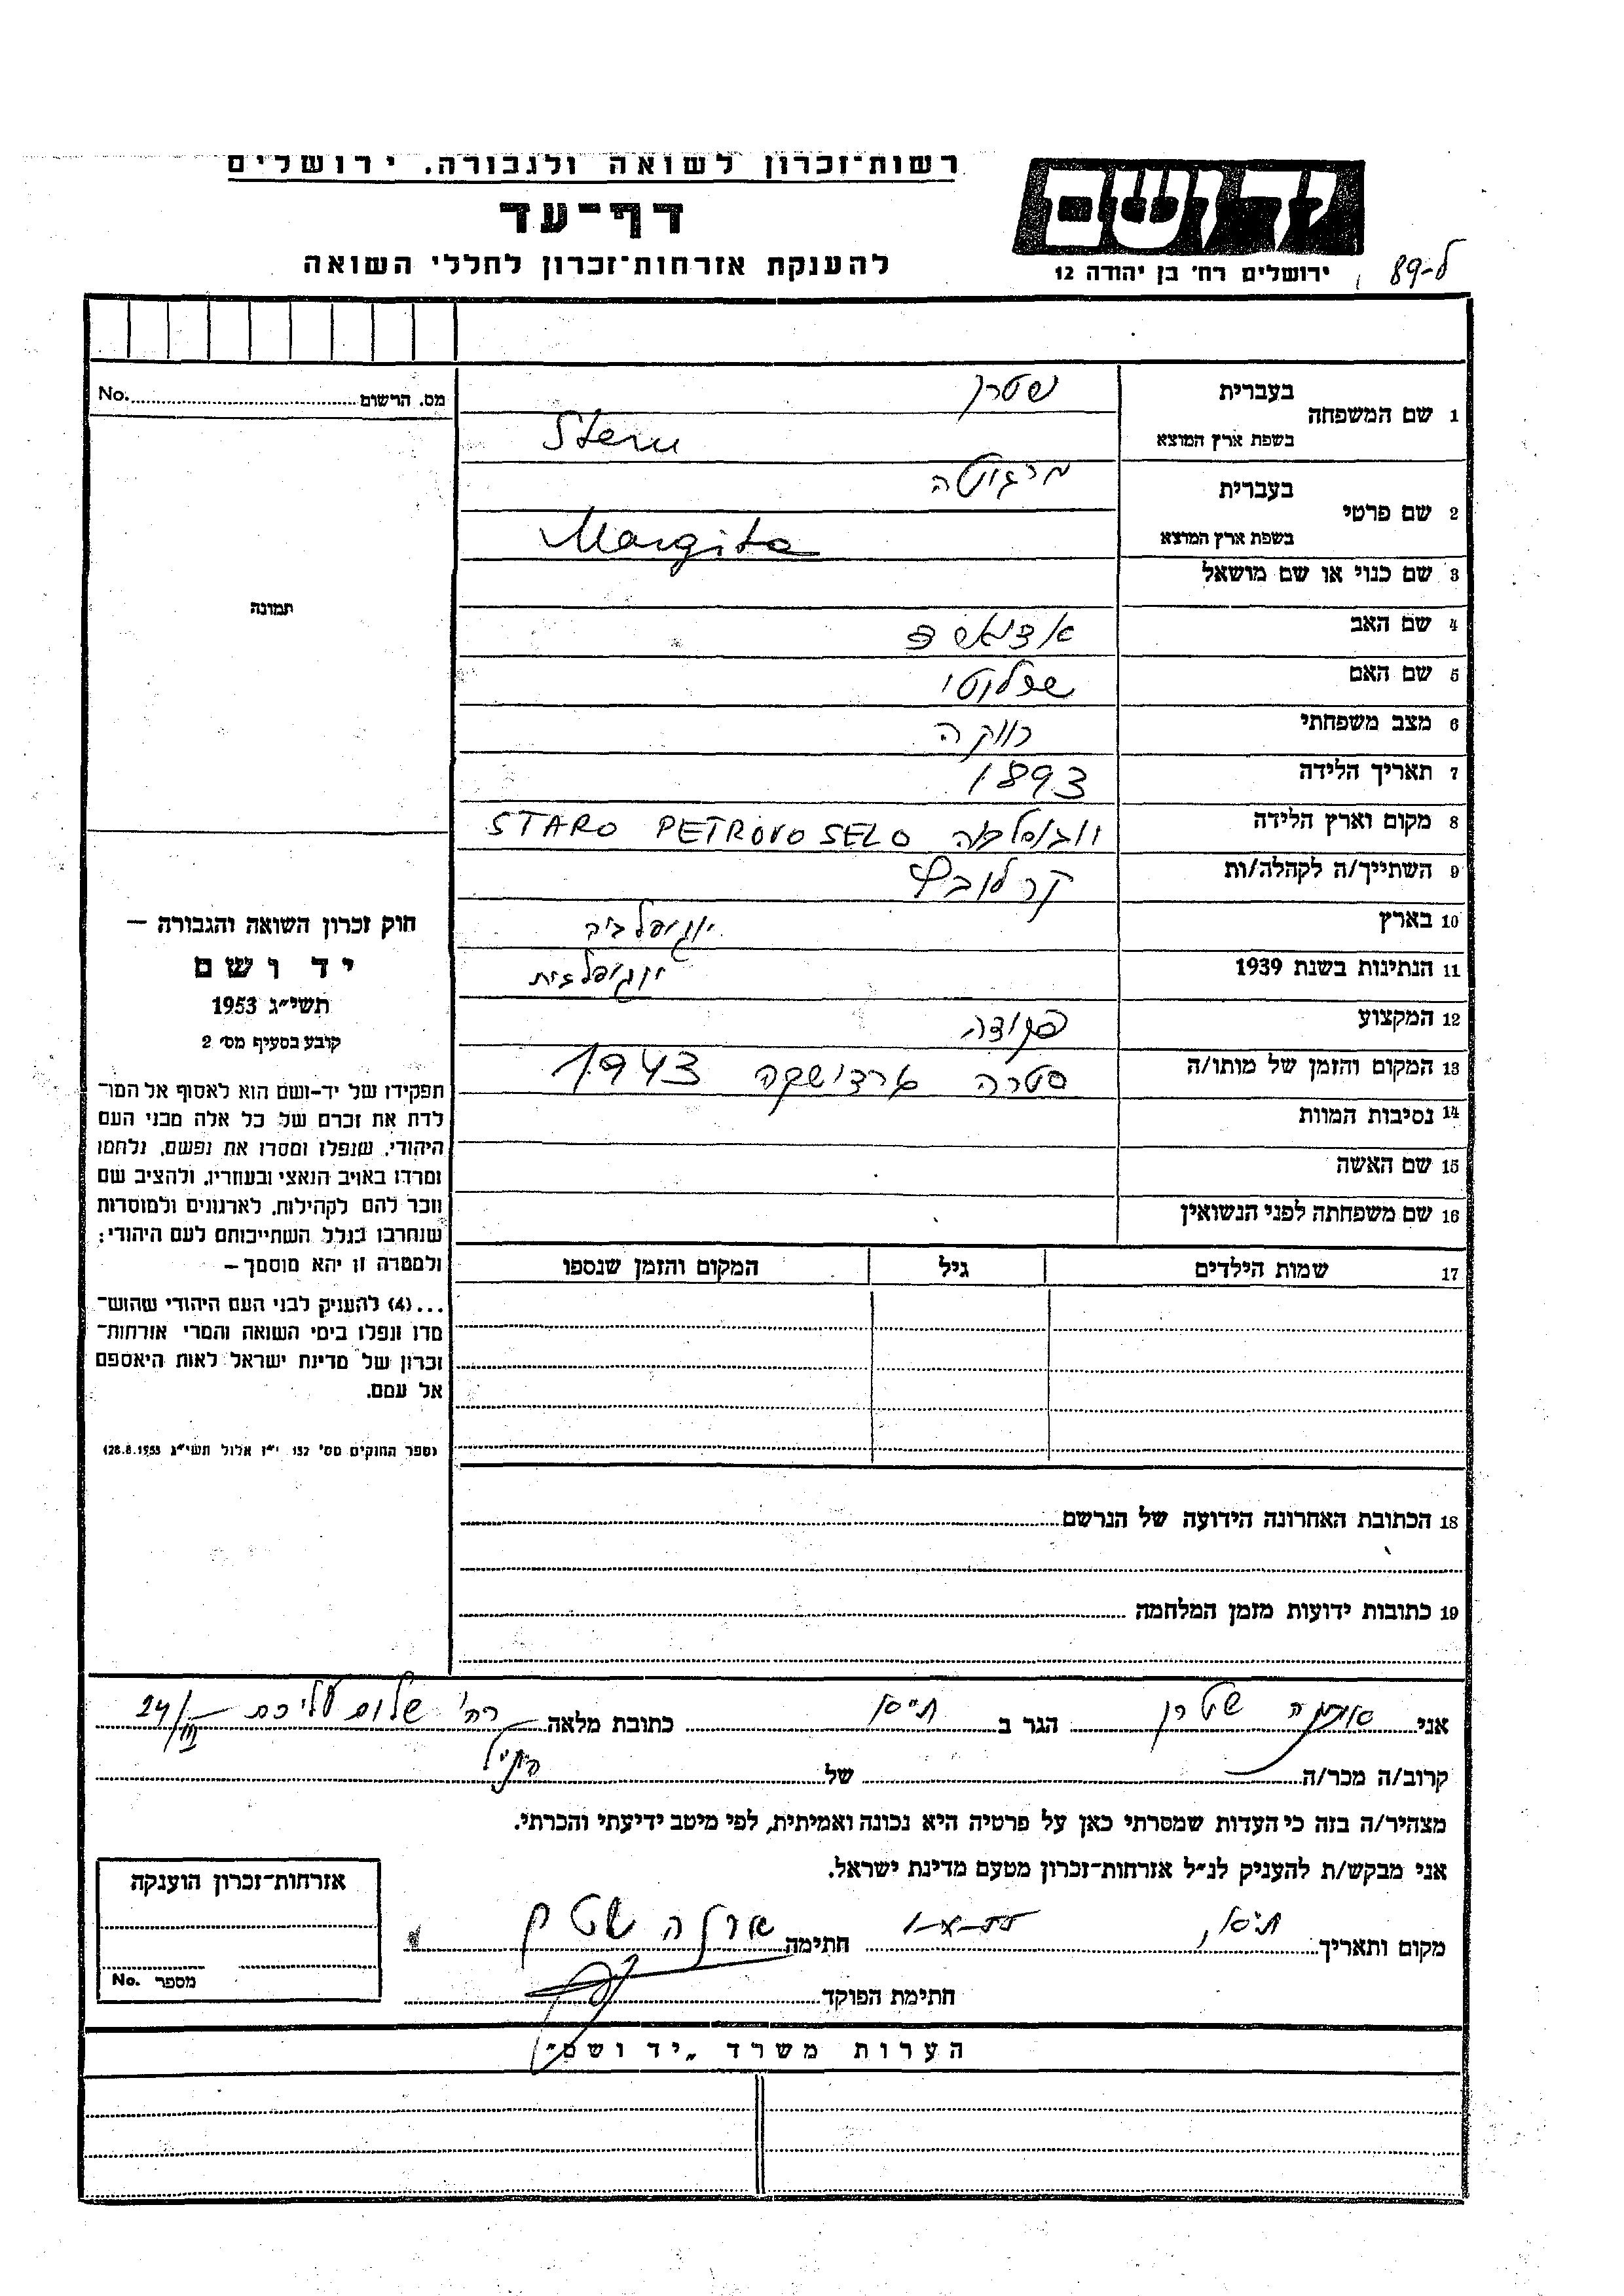 רשות־זכרון לשואה ולגבורה, ירושלים
דף־עד
להענקת אזרחות־זכרון לחללי השואה
יד ושם
ירושלים רח' בן יהודה 12
ל-89
מס. הרשום No.
תמונה
1 שם המשפחה בעברית שטרן
בשפת ארץ המוצא Stern
2 שם פרטי בעברית מרגיטה
בשפת ארץ המוצא Margita
3 שם כנוי או שם מושאל
4 שם האב
5 שם האם
6 מצב משפחתי רווקה
7 תאריך הלידה 1893
8 מקום וארץ הלידה STARO PETROVO SELO
9 השתייך/ה לקהלה/ות
10 בארץ יוגוסלביה
11 הנתינות בשנת 1939 יוגוסלבית
12 המקצוע פקידה
13 המקום והזמן של מותו/ה סטרה גרדישקה 1943
14 נסיבות המוות
15 שם האשה
16 שם משפחתה לפני הנשואין
17 שמות הילדים גיל המקום והזמן שנספו
18 הכתובת האחרונה הידועה של הנרשם
19 כתובות ידועות מזמן המלחמה
חוק זכרון השואה והגבורה —
יד ושם
תשי"ג 1953
קובע בסעיף מס' 2
תפקידו של יד-ושם הוא לאסוף אל המו־
לדת את זכרם של כל אלה מבני העם
היהודי, שנפלו ומסרו את נפשם, נלחמו
ומרדו באויב הנאצי ובעוזריו, ולהציב שם
וזכר להם לקהילות, לארגונים ולמוסדות
שנחרבו בגלל השתייכותם לעם היהודי;
ולמטרה זו יהא מוסמך —
...(4) להעניק לבני העם היהודי שהוש־
מדו ונפלו בימי השואה והמרי אזרחות־
זכרון של מדינת ישראל לאות היאספם
אל עמם.
(ספר החוקים מס' 132 י"ז אלול תשי"ג 28.8.1953)
אני שטרן הגר ב ת"א כתובת מלאה רח' שלום עליכם 24/III
קרוב/ה מכר/ה של
מצהיר/ה בזה כי העדות שמסרתי כאן על פרטיה היא נכונה ואמיתית, לפי מיטב ידיעתי והכרתי.
אני מבקש/ת להעניק לנ"ל אזרחות־זכרון מטעם מדינת ישראל.
מקום ותאריך ת"א, חתימה שטרן
חתימת הפוקד
אזרחות־זכרון הוענקה
מספר No.
הערות משרד „יד ושם"